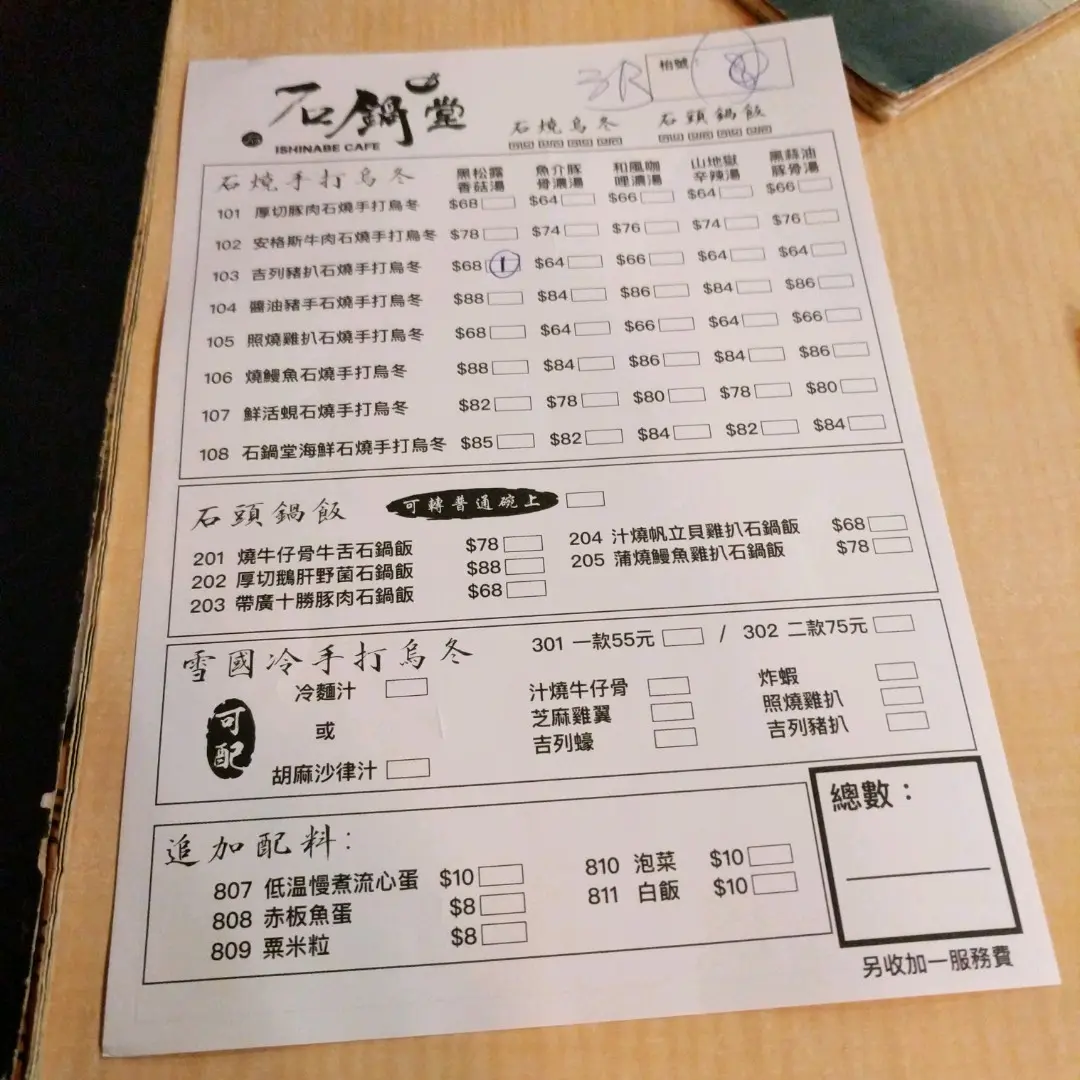 石鍋堂
ISHINABE CAFE
3R
枱號：
石燒烏冬
石頭鍋飯
石燒手打烏冬 黑松露香菇湯 魚介豚骨濃湯 和風咖哩濃湯 山地獄辛辣湯 黑蒜油豚骨湯
101 厚切豚肉石燒手打烏冬 $68 $64 $66 $64 $66
102 安格斯牛肉石燒手打烏冬 $78 $74 $76 $74 $76
103 吉列豬扒石燒手打烏冬 $68 1 $64 $66 $64 $64
104 醬油豬手石燒手打烏冬 $88 $84 $86 $84 $86
105 照燒雞扒石燒手打烏冬 $68 $64 $66 $64 $66
106 燒鰻魚石燒手打烏冬 $88 $84 $86 $84 $86
107 鮮活蜆石燒手打烏冬 $82 $78 $80 $78 $80
108 石鍋堂海鮮石燒手打烏冬 $85 $82 $84 $82 $84
石頭鍋飯 可轉普通碗上
201 燒牛仔骨牛舌石鍋飯 $78
202 厚切鵝肝野菌石鍋飯 $88
203 帶廣十勝豚肉石鍋飯 $68
204 汁燒帆立貝雞扒石鍋飯 $68
205 蒲燒鰻魚雞扒石鍋飯 $78
雪國冷手打烏冬 301 一款55元 / 302 二款75元
可配
冷麵汁
或
胡麻沙律汁
汁燒牛仔骨
芝麻雞翼
吉列蠔
炸蝦
照燒雞扒
吉列豬扒
追加配料:
807 低温慢煮流心蛋 $10
808 赤板魚蛋 $8
809 粟米粒 $8
810 泡菜 $10
811 白飯 $10
總數：
另收加一服務費